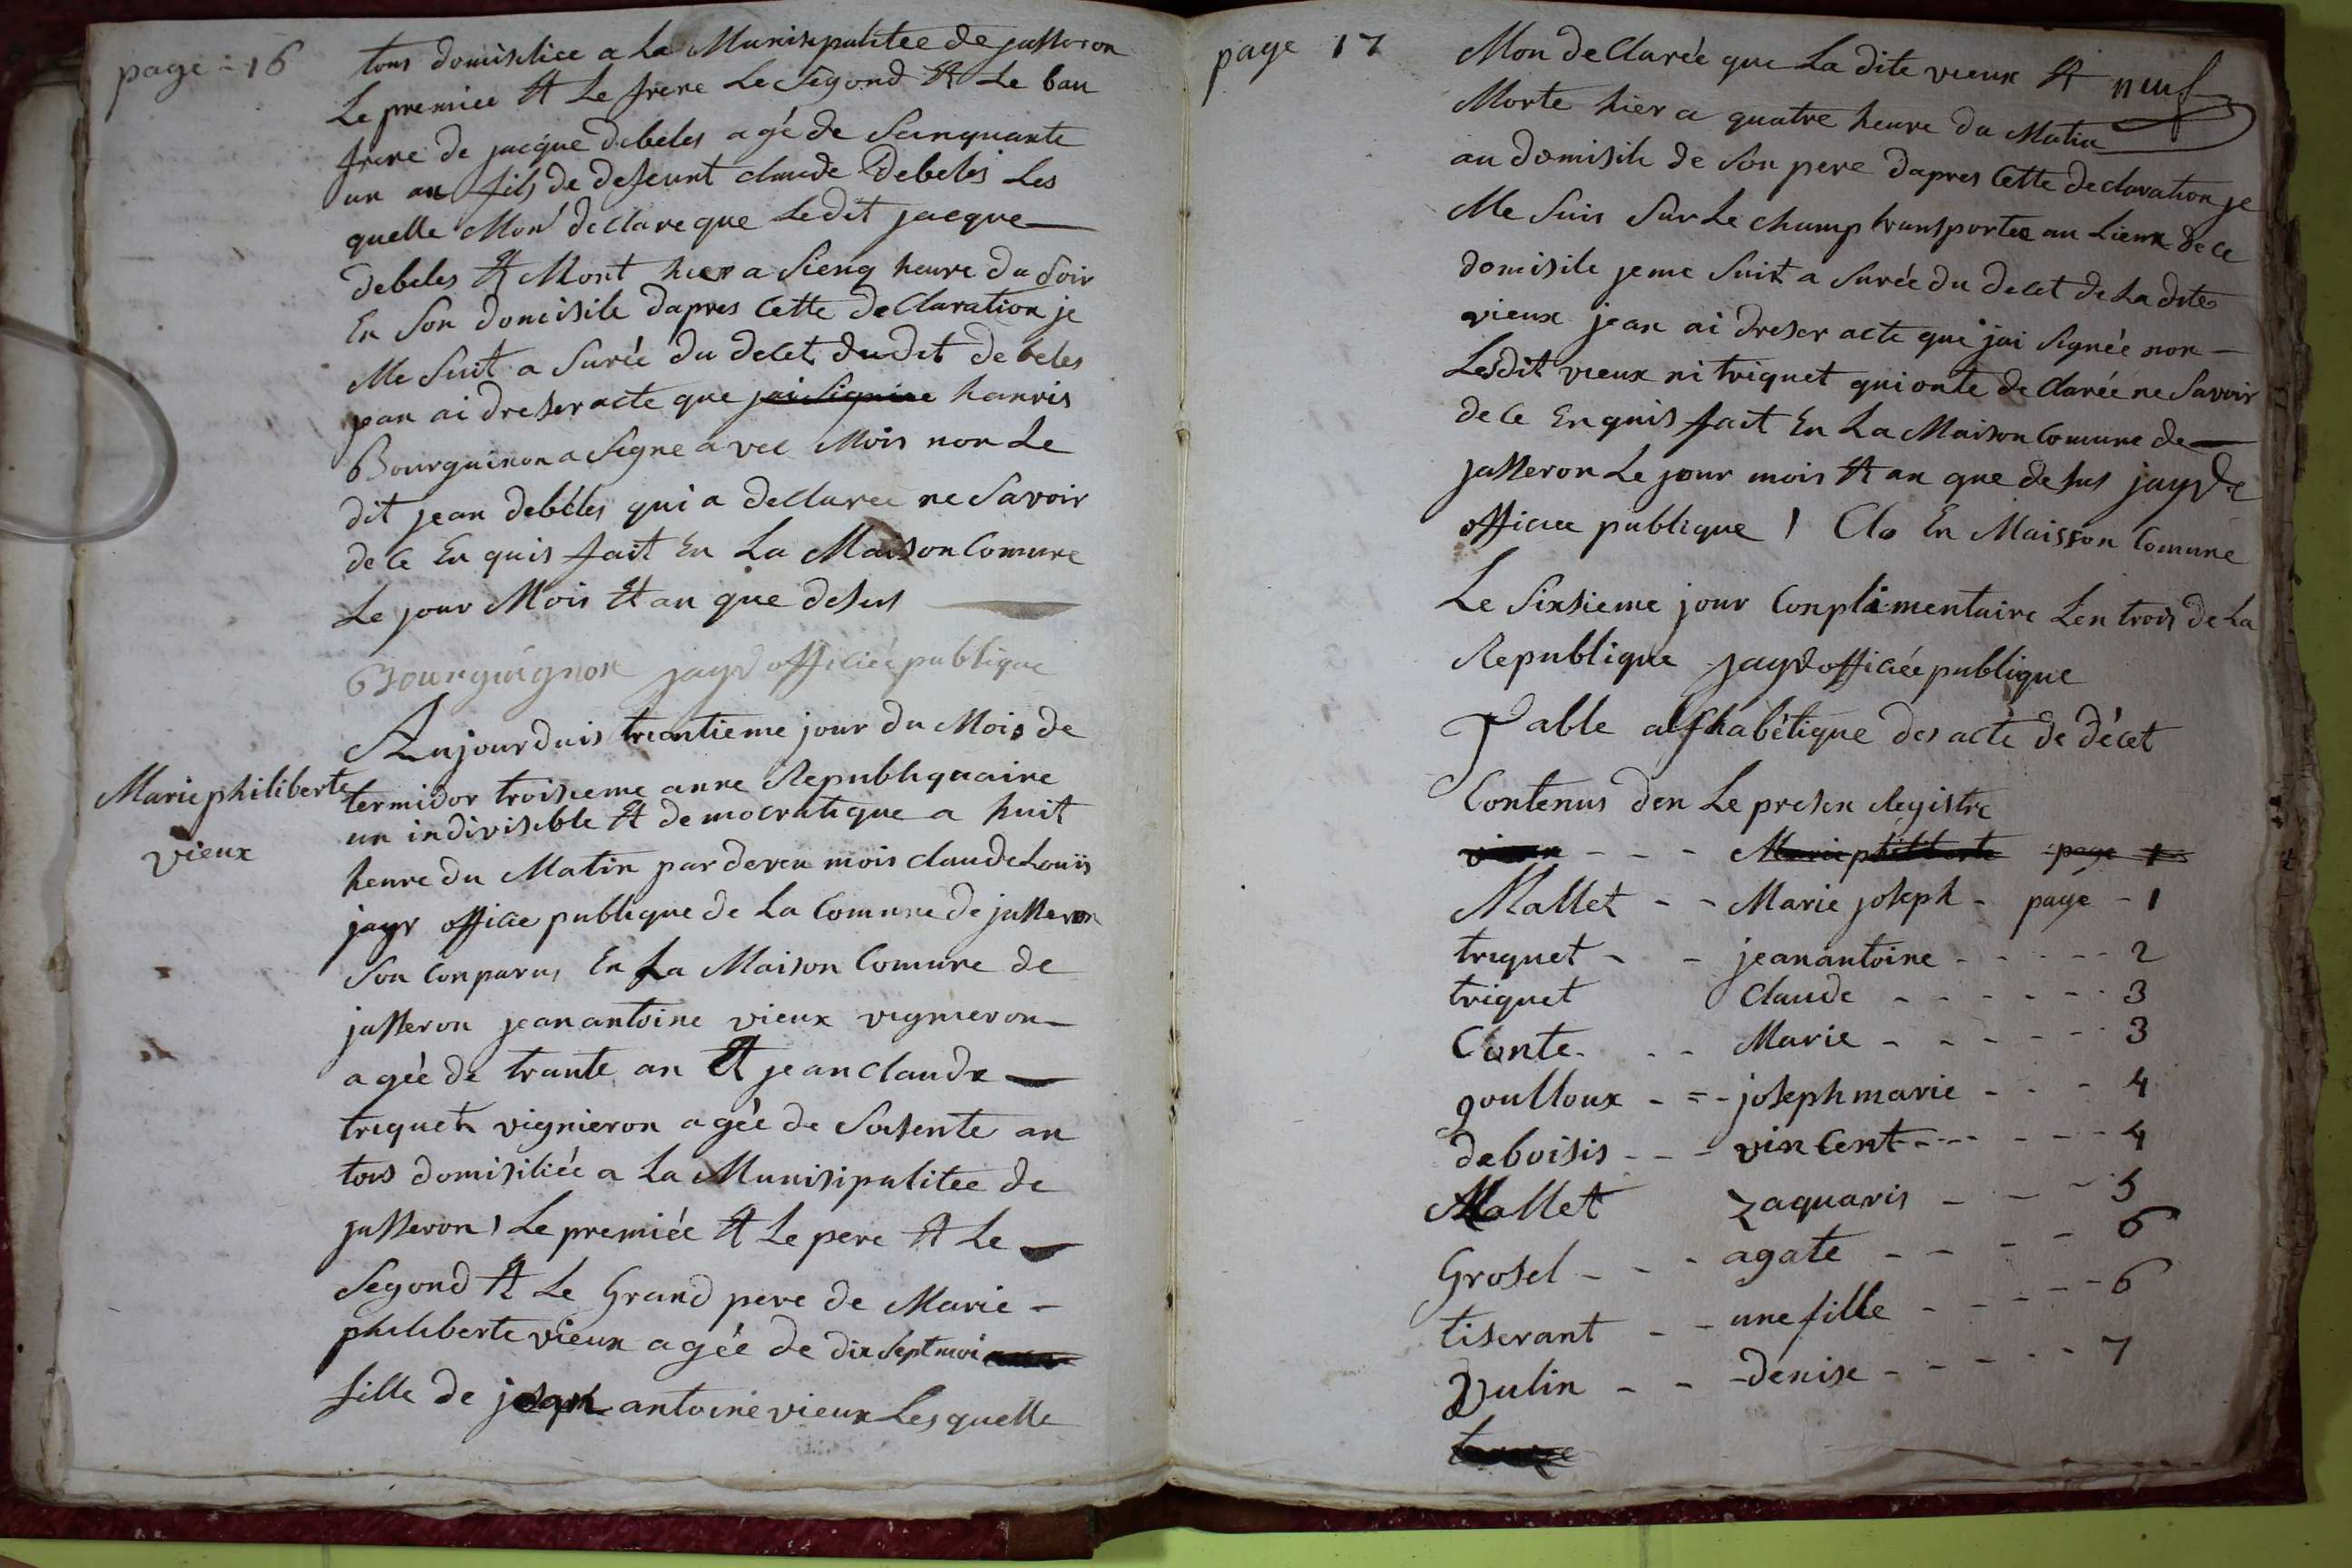 page - 16
tous domisiliee a La Munisipalitee de jasseron
Le premiee Et Le frere Le Segond Et Le bau
frere de jacque debeles agé de Sanquante
un an fils de defeunt claude Debeles Les
quelle Mon déclare que Ledit jacque
debeles Et Mort hier a Sienq heure du Soir
En Son domisile dapres Cette declaration je
Me Suit a Surée du decet dudit debeles
jean ai dreser acte que jai Signiee hanris
Bourguinon a Signe avec Mois non Le
dit jean debeles qui a declaree ne Savoir
de Ce En quis fait En La Maison Comune
Le jour Mois Et an que desus
Bourguignon jayr officiée publique
Marie philiberte
vieux
Aujourduis trantieme jour du Mois de
termidor troisieme anne Republiquaine
un indivisible Et democratique a huit
heure du Matin par deven mois claude Louis
jayr officie publique de La Comune de jasseron
Son Conparus En La Maison Comune de
jasseron jeanantoine vieux vignieron
agée de trante an Et jean claude
triquet vignieron agée de Soisente an
tous domisiliée a La Munisipalitee de
jasseron Le premiée Et Le pere Et Le
Segond Et Le Grand pere de Marie -
philiberte vieux agée de dix Sept moi
fille de antoine vieux Lesquelle
page 17
neuf
Mon declarée que La dite vieux Et
Morte hier a quatre heure du Matin
au domisile de Son pere dapres Cette declaration je
Me Suis Sur Le champ transportee au Lieux de Ce
domisile je me Suit a Surée du decet de La dite
vieux jean ai dreser acte que jai Signée non -
Lesdit vieux ni triquet qui onte declarée ne Savoir
de Ce Enquis fait En La Maison Comune de
jasseron Le jour mois Et an que desus jayr
officiee publique / Clo En Maisson Comune
Le Sixsieme jour Conplimentaire Len trois de La
Republique jayr officiée publique
Table alfhabétique des acte de décet
Contenus den Le presen Registre
vieux - - - Marie philiberte page 1
Mallet - - Marie joseph - page - 1
triquet - - jeanantoine - - - - - 2
triquet Claude - - - - - - 3
Conte - - - Marie - - - - - - 3
goulloux - = - joseph marie - - - 4
deboisis - - - vincent - - - - - - 4
Mallet zaquaris - - - - 5
Grosel - - - agate - - - - 6
tiserant - - une fille - - - - - 6
Vulin - - - denise - - - - - 7